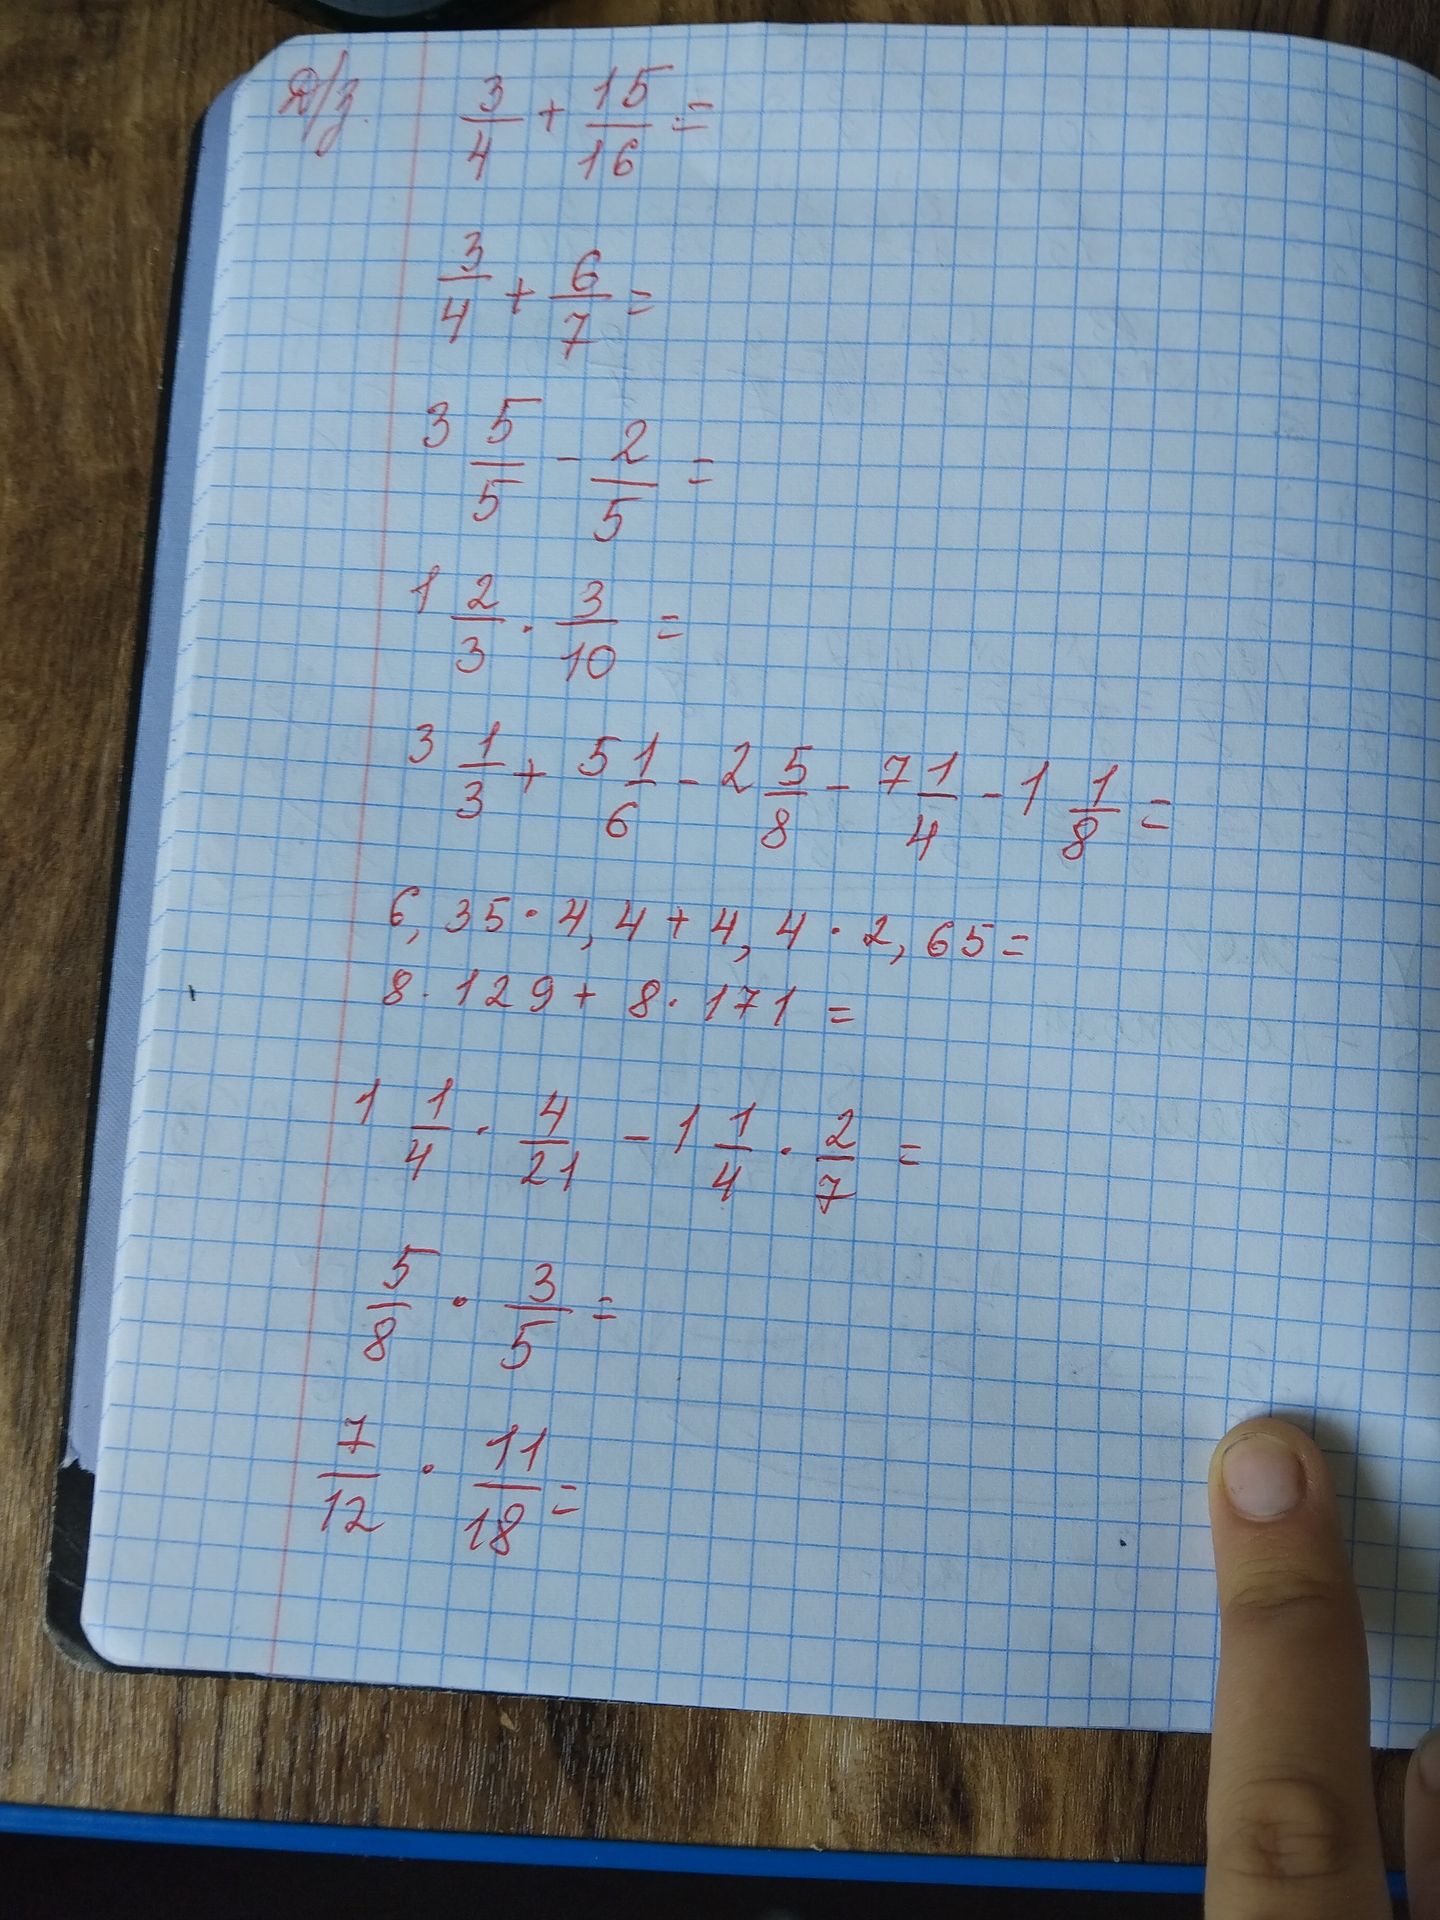 Д/з. 3/4 + 15/16 =
3/4 + 6/7 =
3 5/5 - 2/5 =
1 2/3 · 3/10 =
3 1/3 + 5 1/6 - 2 5/8 - 7 1/4 - 1 1/8 =
6,35 · 4,4 + 4,4 · 2,65 =
8 · 129 + 8 · 171 =
1 1/4 · 4/21 - 1 1/4 · 2/7 =
5/8 · 3/5 =
7/12 · 11/18 =